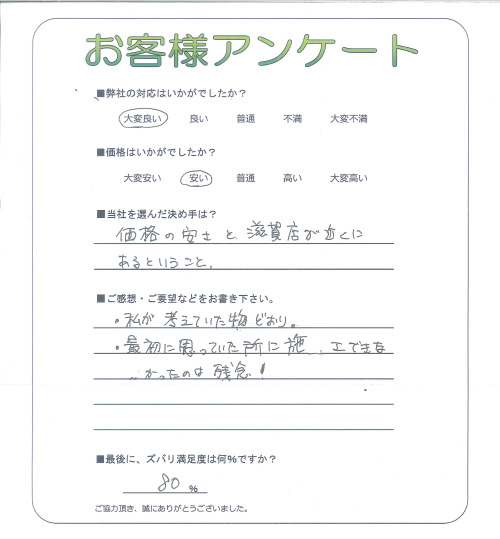 お客様アンケート
■弊社の対応はいかがでしたか？
大変良い 良い 普通 不満 大変不満
■価格はいかがでしたか？
大変安い 安い 普通 高い 大変高い
■当社を選んだ決め手は？
価格の安さと、滋賀店が近くに
あるということ。
■ご感想・ご要望などをお書き下さい。
・私が考えていた物どおり。
・最初に思っていた所に施工できな
かったのは残念！
■最後に、ズバリ満足度は何％ですか？
80 %
ご協力頂き、誠にありがとうございました。